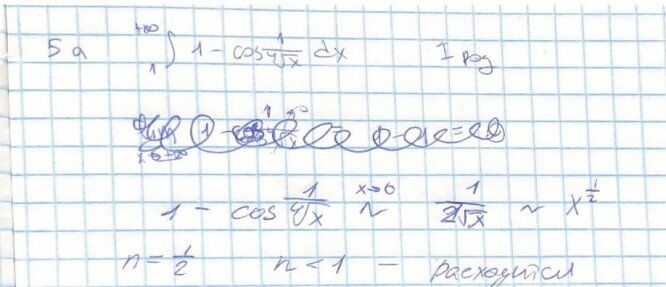 5 а ∫₁^{+∞} 1 - cos 1/∜x dx I род
1 - cos 1/∜x ~ x→0 1/2√x ~ x^{1/2}
n = 1/2 n < 1 — расходится